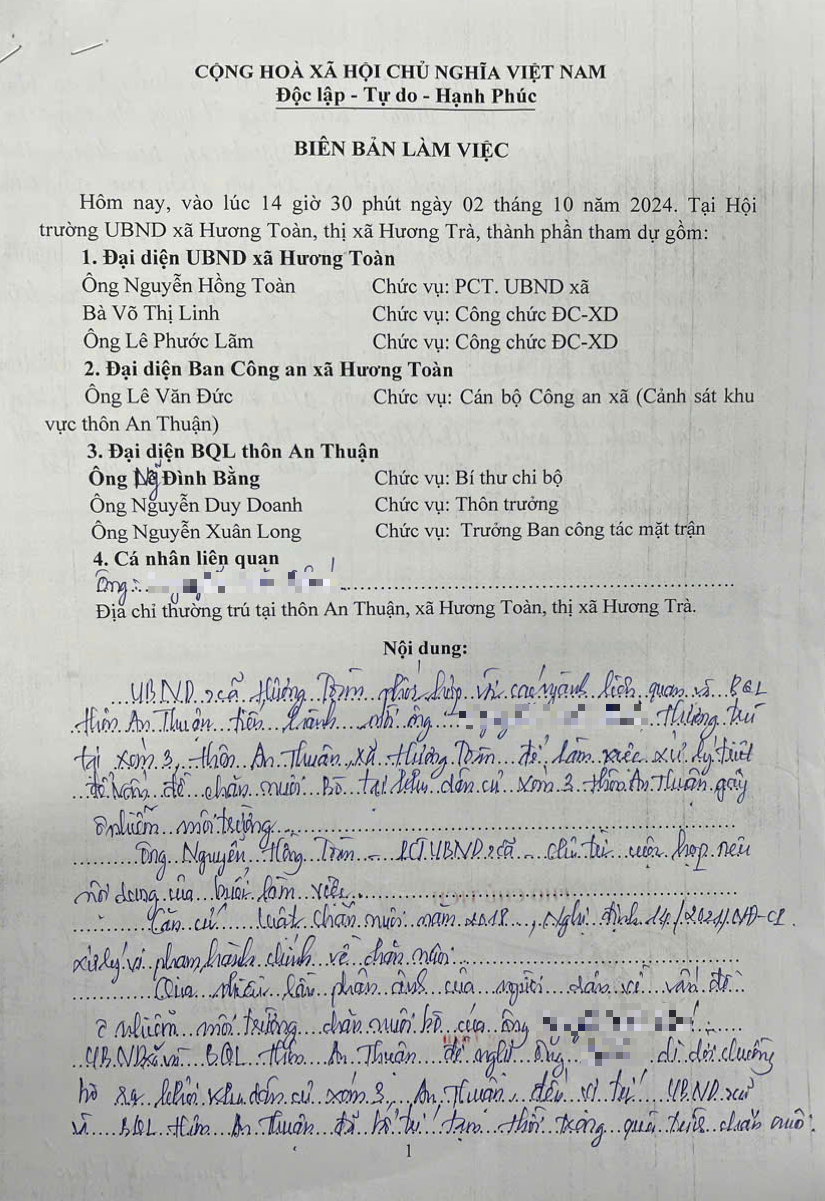 CỘNG HOÀ XÃ HỘI CHỦ NGHĨA VIỆT NAM
Độc lập - Tự do - Hạnh Phúc
BIÊN BẢN LÀM VIỆC
Hôm nay, vào lúc 14 giờ 30 phút ngày 02 tháng 10 năm 2024. Tại Hội
trường UBND xã Hương Toàn, thị xã Hương Trà, thành phần tham dự gồm:
1. Đại diện UBND xã Hương Toàn
Ông Nguyễn Hồng Toàn Chức vụ: PCT. UBND xã
Bà Võ Thị Linh Chức vụ: Công chức ĐC-XD
Ông Lê Phước Lãm Chức vụ: Công chức ĐC-XD
2. Đại diện Ban Công an xã Hương Toàn
Ông Lê Văn Đức Chức vụ: Cán bộ Công an xã (Cảnh sát khu
vực thôn An Thuận)
3. Đại diện BQL thôn An Thuận
Ông Đình Bằng Chức vụ: Bí thư chi bộ
Ông Nguyễn Duy Doanh Chức vụ: Thôn trưởng
Ông Nguyễn Xuân Long Chức vụ: Trưởng Ban công tác mặt trận
4. Cá nhân liên quan
Ông:
Địa chỉ thường trú tại thôn An Thuận, xã Hương Toàn, thị xã Hương Trà.
Nội dung:
UBND xã Hương Toàn phối hợp với các ngành liên quan và BQL
thôn An Thuận tiến hành mời ông thường trú
tại xóm 3, thôn An Thuận, xã Hương Toàn để làm việc xử lý triệt
để vấn đề chăn nuôi bò tại khu dân cư xóm 3 thôn An Thuận gây
ô nhiễm môi trường
Ông Nguyễn Hồng Toàn - PCT UBND xã - chủ trì cuộc họp nêu
nội dung của buổi làm việc
Căn cứ Luật chăn nuôi năm 2018, Nghị định 14/2021/NĐ-CP
xử lý vi phạm hành chính về chăn nuôi
Qua nhiều lần phản ánh của người dân về vấn đề
ô nhiễm môi trường chăn nuôi bò của ông
UBND xã và BQL thôn An Thuận đề nghị ông di dời chuồng
bò ra khỏi khu dân cư xóm 3, An Thuận, đến vị trí UBND xã
và BQL thôn An Thuận đã bố trí tạm thời trong quá trình chăn nuôi.
1